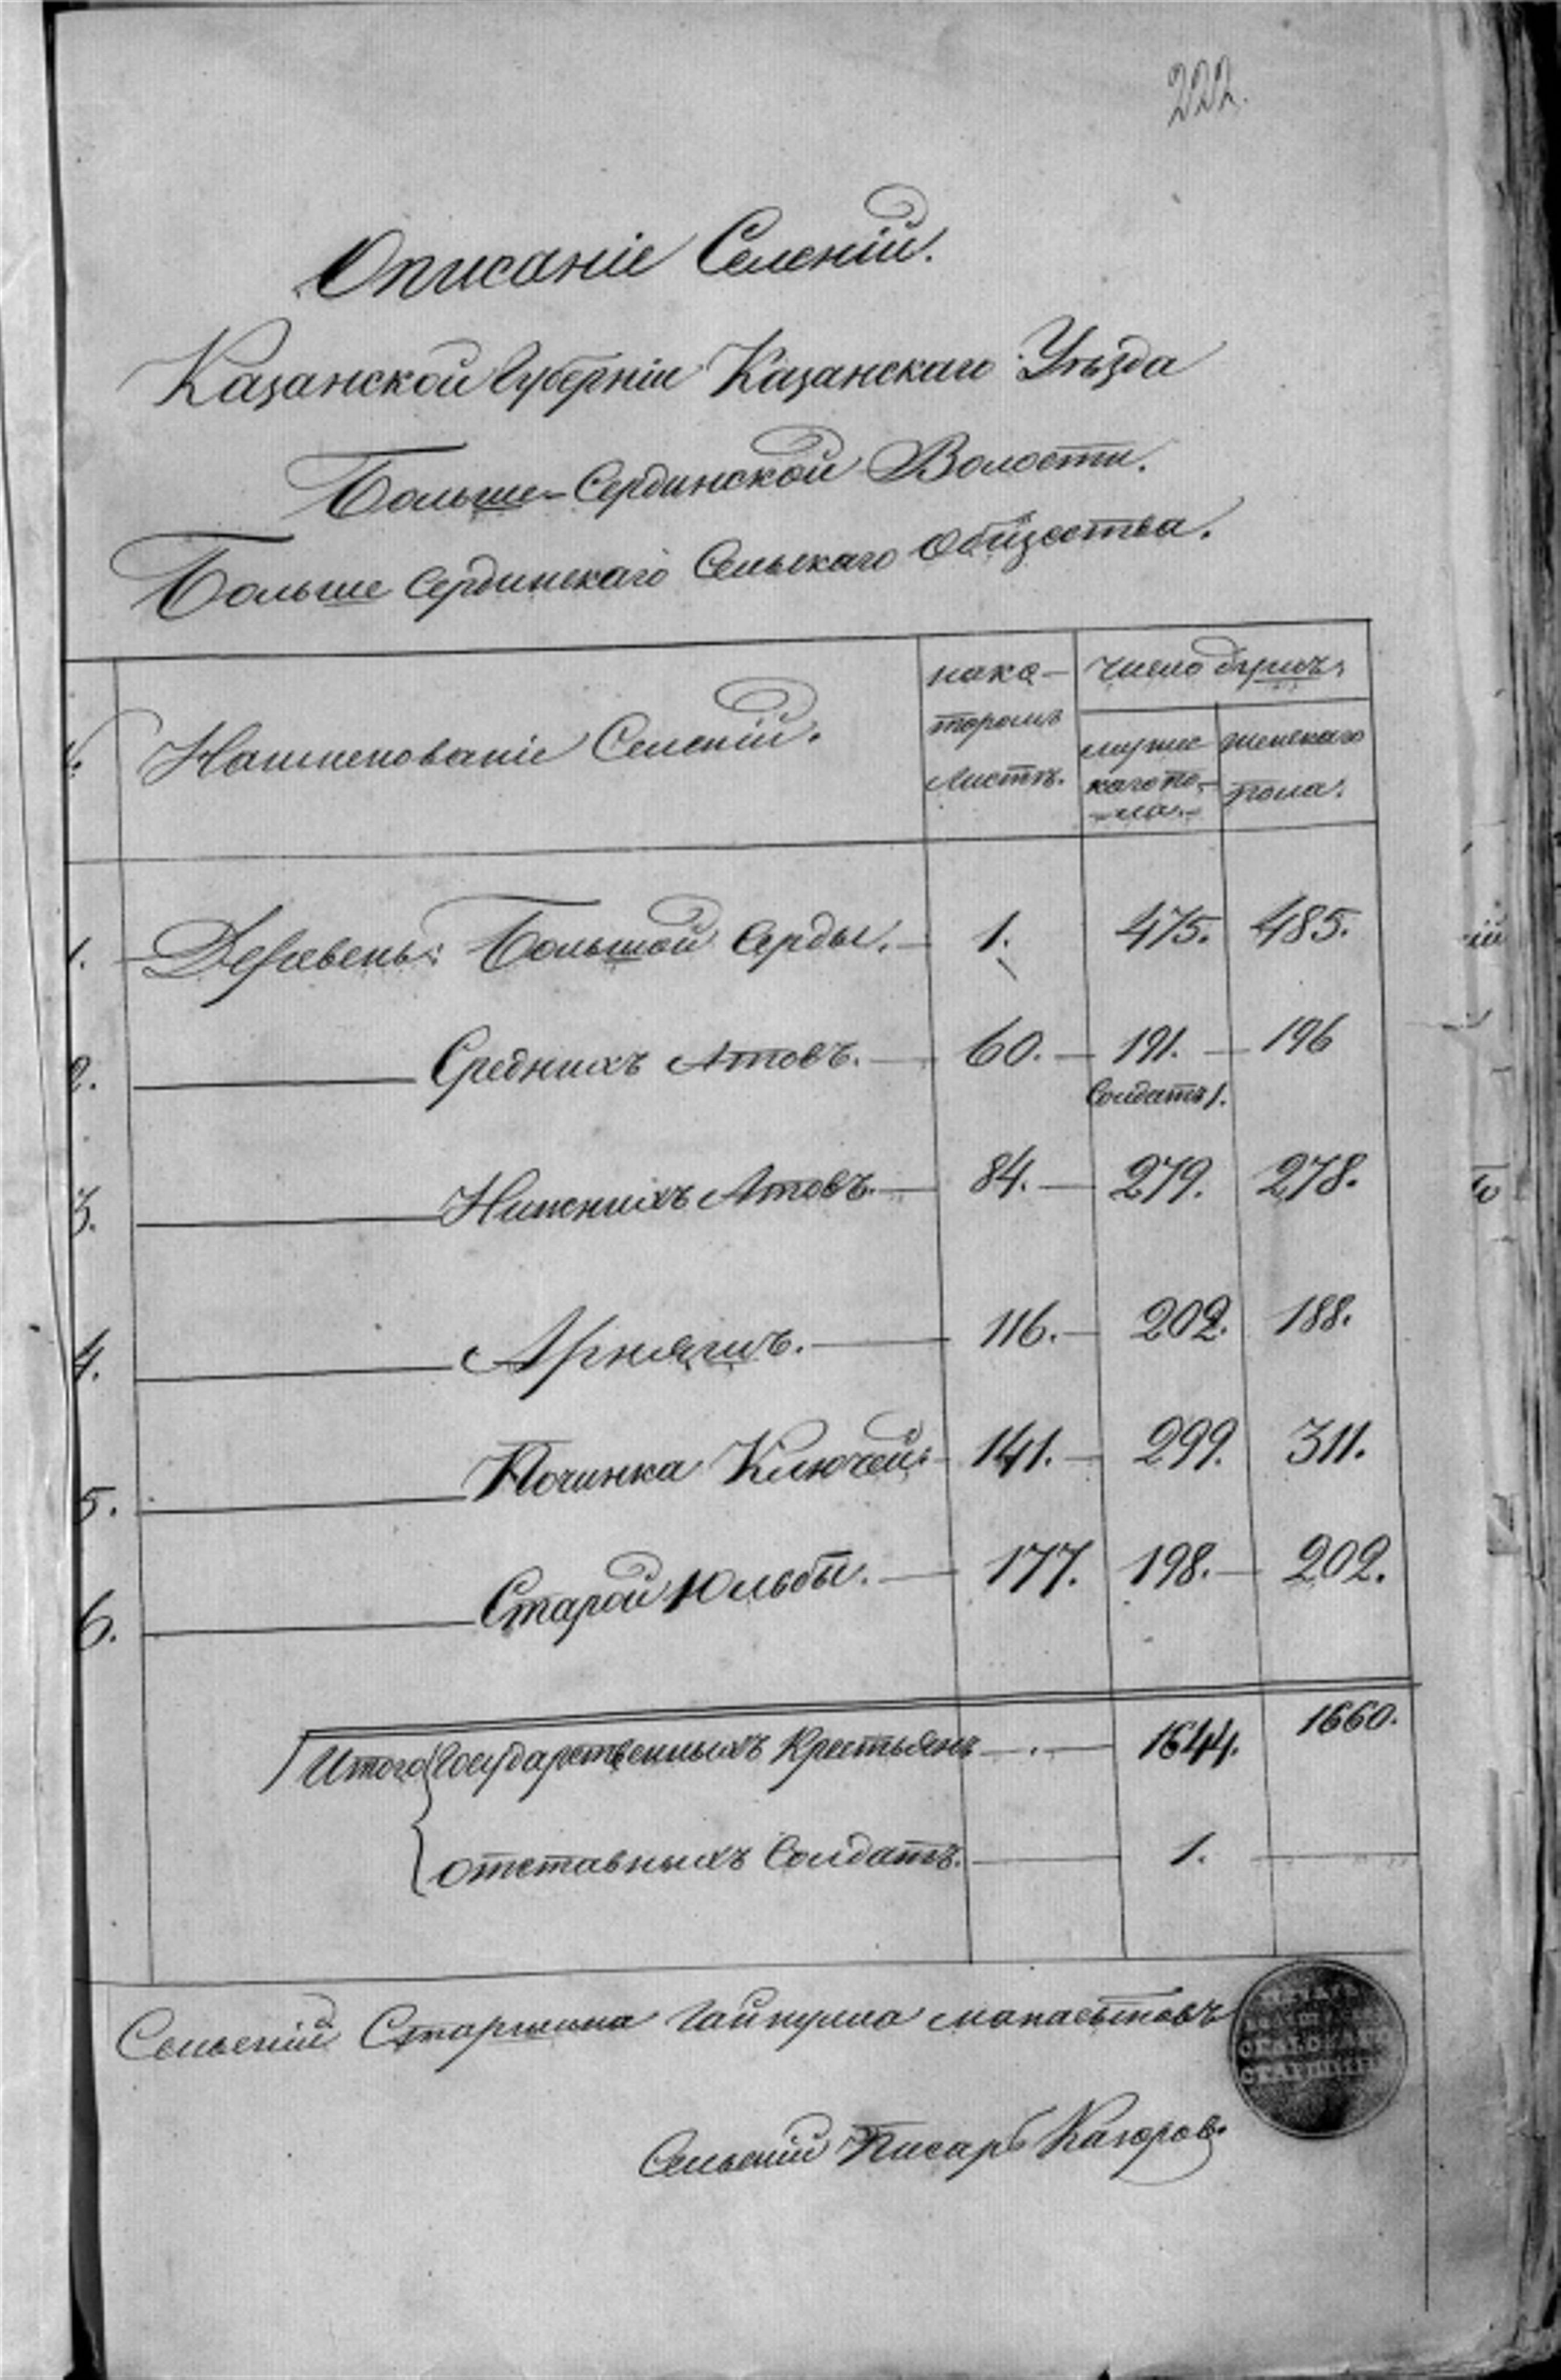 222.
Описаніе Селеній.
Казанской Губерніи Казанскаго Уѣзда
Больше-Сердинской Волости.
Больше Сердинскаго Сельскаго Общества.
№. Наименованіе Селеній. на ко- число душъ.
торомъ мужес женскаго
листѣ. каго по- пола.
ла.
1. Деревень: Большой Серды. 1. 475. 485.
2. Среднихъ Атовъ. 60. 191. 196
Солдатъ 1.
3. Нижнихъ Атовъ. 84. 279. 278.
4. Арняшъ. 116. 202. 188.
5. Починка Ключей. 141. 299. 311.
6. Старой Юльбы. 177. 198. 202.
Итого Государственныхъ Крестьянъ 1644. 1660.
отставныхъ Солдатъ. 1.
Сельскій Старшина
СТАРШИНЫ
Сельскій Писарь